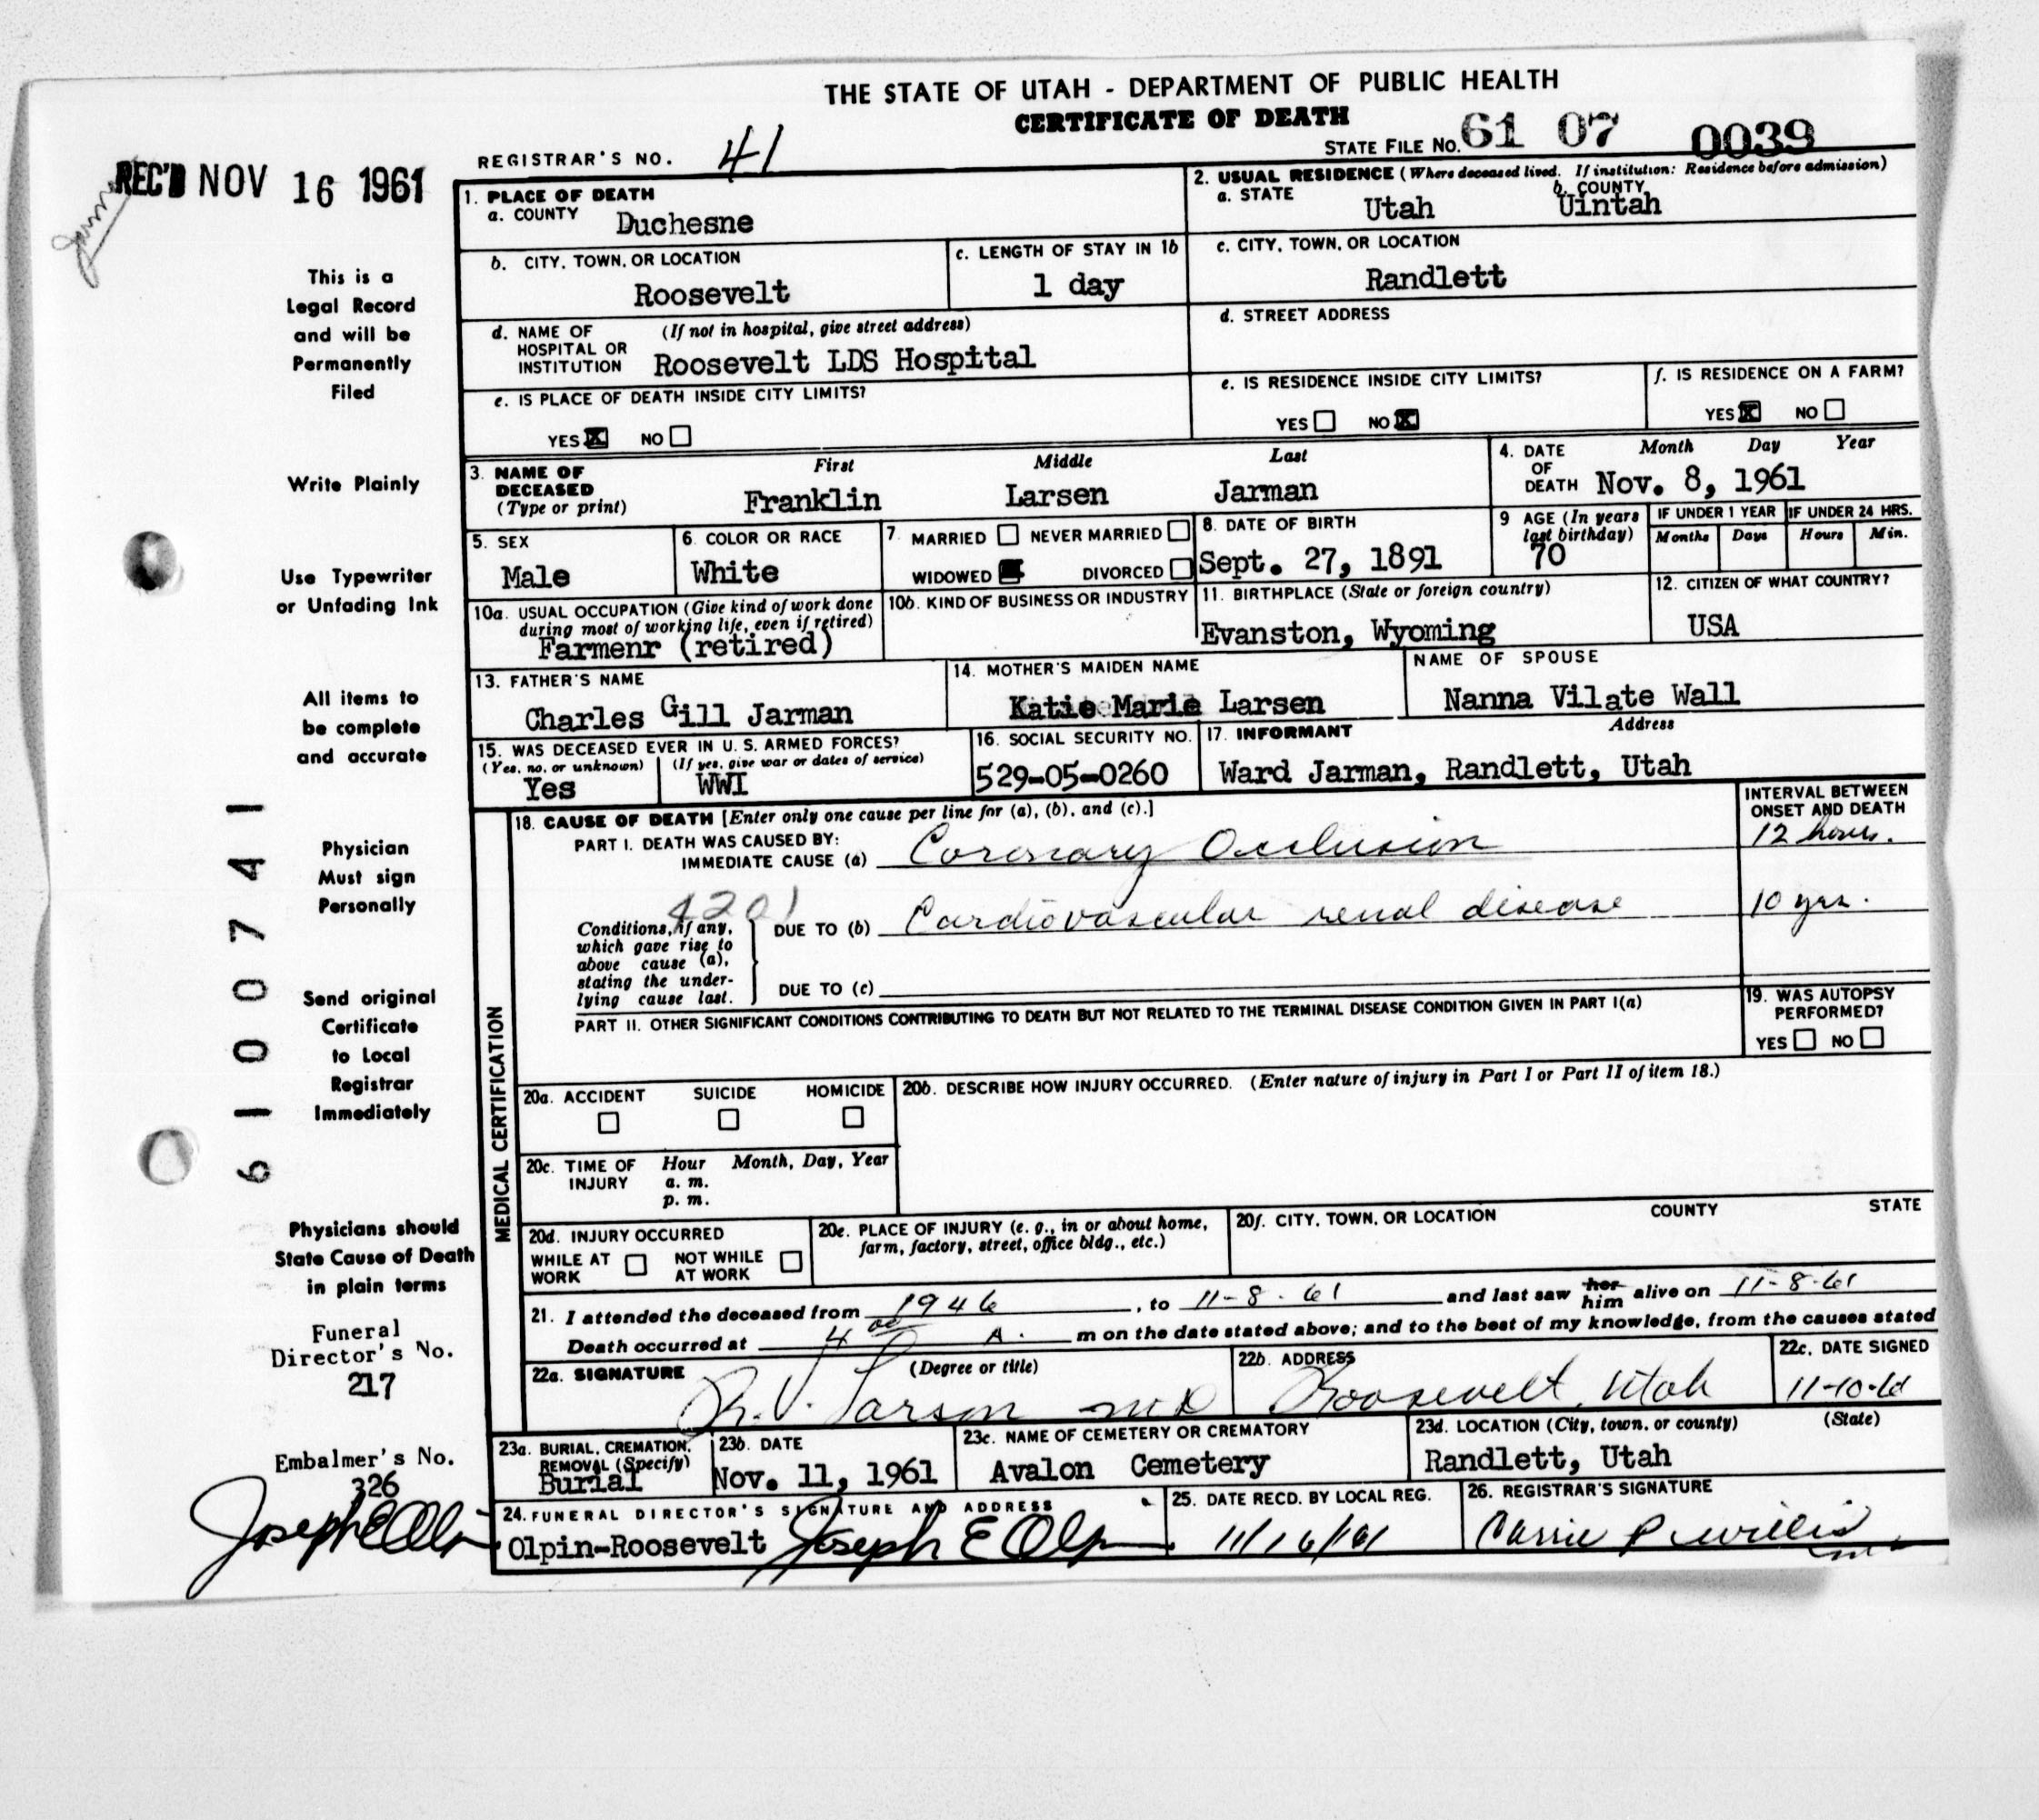 THE STATE OF UTAH - DEPARTMENT OF PUBLIC HEALTH
CERTIFICATE OF DEATH
REC'D NOV 16 1961
REGISTRAR'S NO. 41
STATE FILE No. 61 07 0039
1. PLACE OF DEATH
a. COUNTY Duchesne
2. USUAL RESIDENCE (Where deceased lived. If institution: Residence before admission)
a. STATE Utah b. COUNTY Uintah
b. CITY, TOWN, OR LOCATION Roosevelt
c. LENGTH OF STAY IN 1b 1 day
c. CITY, TOWN, OR LOCATION Randlett
d. NAME OF HOSPITAL OR INSTITUTION (If not in hospital, give street address) Roosevelt LDS Hospital
d. STREET ADDRESS
e. IS PLACE OF DEATH INSIDE CITY LIMITS?
YES X NO
e. IS RESIDENCE INSIDE CITY LIMITS?
YES NO X
f. IS RESIDENCE ON A FARM?
YES X NO
3. NAME OF DECEASED (Type or print)
First Middle Last
Franklin Larsen Jarman
4. DATE OF DEATH Month Day Year
Nov. 8, 1961
5. SEX
Male
6. COLOR OR RACE
White
7. MARRIED NEVER MARRIED
WIDOWED DIVORCED
8. DATE OF BIRTH
Sept. 27, 1891
9 AGE (In years last birthday)
70
IF UNDER 1 YEAR
Months Days
IF UNDER 24 HRS.
Hours Min.
10a. USUAL OCCUPATION (Give kind of work done during most of working life, even if retired)
Farmenr (retired)
10b. KIND OF BUSINESS OR INDUSTRY
11. BIRTHPLACE (State or foreign country)
Evanston, Wyoming
12. CITIZEN OF WHAT COUNTRY?
USA
13. FATHER'S NAME
Charles Gill Jarman
14. MOTHER'S MAIDEN NAME
Katie Marie Larsen
NAME OF SPOUSE
Nanna Vilate Wall
15. WAS DECEASED EVER IN U. S. ARMED FORCES?
(Yes, no, or unknown) (If yes, give war or dates of service)
Yes WWI
16. SOCIAL SECURITY NO.
529-05-0260
17. INFORMANT Address
Ward Jarman, Randlett, Utah
MEDICAL CERTIFICATION
18. CAUSE OF DEATH [Enter only one cause per line for (a), (b), and (c).]
INTERVAL BETWEEN ONSET AND DEATH
PART I. DEATH WAS CAUSED BY:
IMMEDIATE CAUSE (a) Coronary Occlusion 12 hours.
4201
Conditions, if any, which gave rise to above cause (a), stating the underlying cause last.
DUE TO (b) Cardiovascular renal disease 10 yrs.
DUE TO (c)
PART II. OTHER SIGNIFICANT CONDITIONS CONTRIBUTING TO DEATH BUT NOT RELATED TO THE TERMINAL DISEASE CONDITION GIVEN IN PART I(a)
19. WAS AUTOPSY PERFORMED?
YES NO
20a. ACCIDENT SUICIDE HOMICIDE
20b. DESCRIBE HOW INJURY OCCURRED. (Enter nature of injury in Part I or Part II of item 18.)
20c. TIME OF INJURY Hour Month, Day, Year
a. m.
p. m.
20d. INJURY OCCURRED
WHILE AT WORK NOT WHILE AT WORK
20e. PLACE OF INJURY (e. g., in or about home, farm, factory, street, office bldg., etc.)
20f. CITY, TOWN, OR LOCATION COUNTY STATE
21. I attended the deceased from 1946, to 11-8-61 and last saw her him alive on 11-8-61
Death occurred at 4 00 A. m on the date stated above; and to the best of my knowledge, from the causes stated
22a. SIGNATURE (Degree or title)
R. V. Larson MD
22b. ADDRESS
Roosevelt, Utah
22c. DATE SIGNED
11-10-61
23a. BURIAL, CREMATION, REMOVAL (Specify)
Burial
23b. DATE
Nov. 11, 1961
23c. NAME OF CEMETERY OR CREMATORY
Avalon Cemetery
23d. LOCATION (City, town, or county) (State)
Randlett, Utah
24. FUNERAL DIRECTOR'S SIGNATURE AND ADDRESS
Olpin-Roosevelt Joseph E Olpin
25. DATE RECD. BY LOCAL REG.
11/16/61
26. REGISTRAR'S SIGNATURE
Carrie P Willis
This is a
Legal Record
and will be
Permanently
Filed
Write Plainly
Use Typewriter
or Unfading Ink
All items to
be complete
and accurate
Physician
Must sign
Personally
Send original
Certificate
to Local
Registrar
Immediately
61 00741
Physicians should
State Cause of Death
in plain terms
Funeral
Director's No.
217
Embalmer's No.
326
Joseph E Olpin